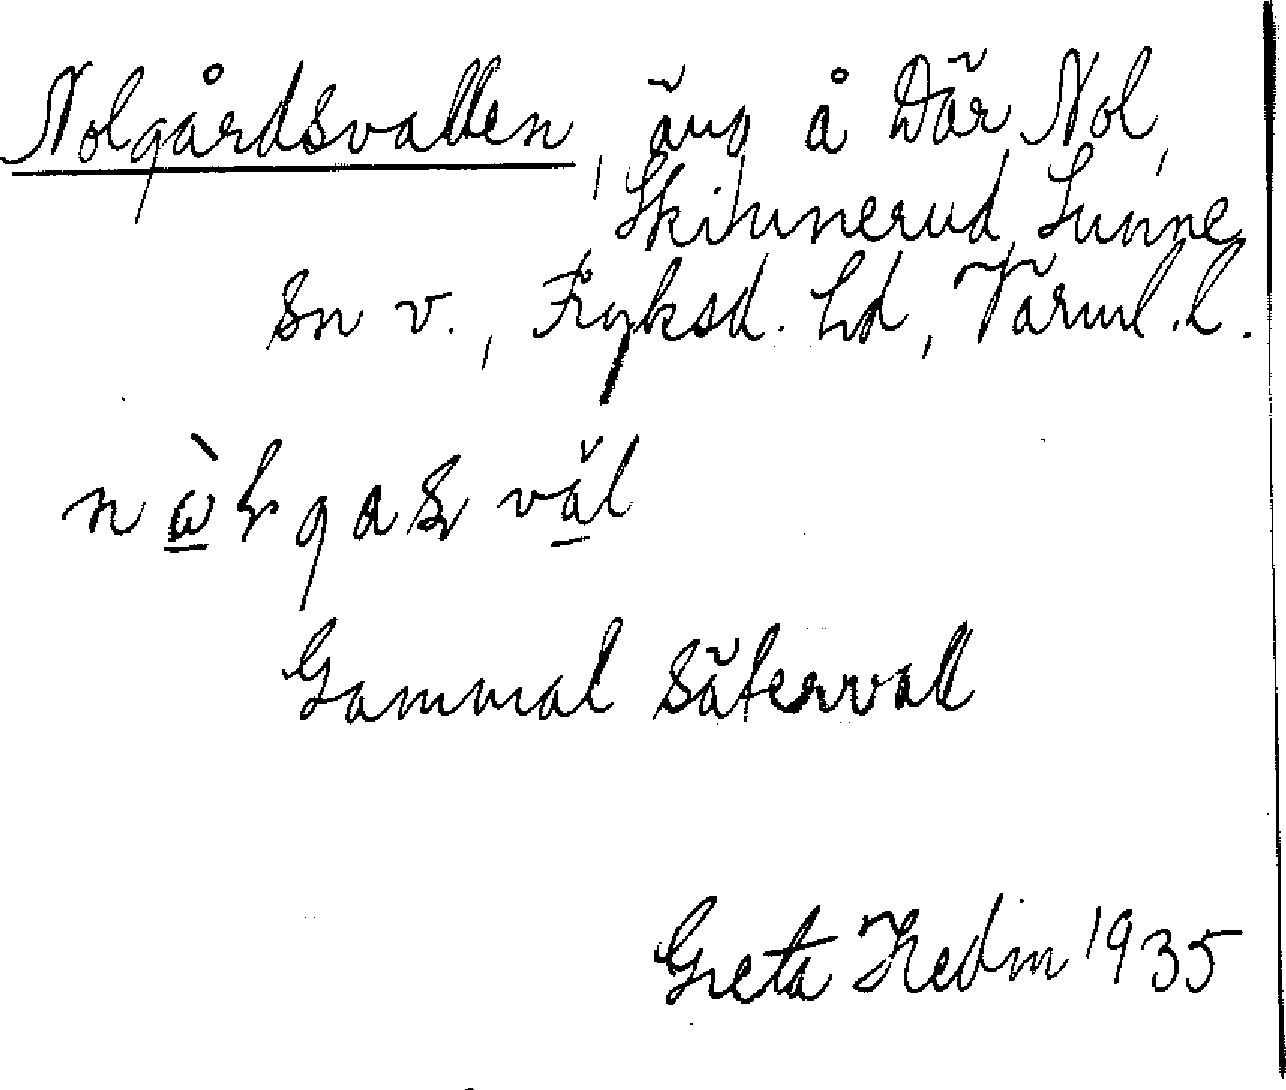 Nolgårdsvallen, äng å Där Nol,
Skinnerud, Sunne
sn v., Fryksd. hd, Värml. l.
Gammal sätervall
Greta Hedin 1935